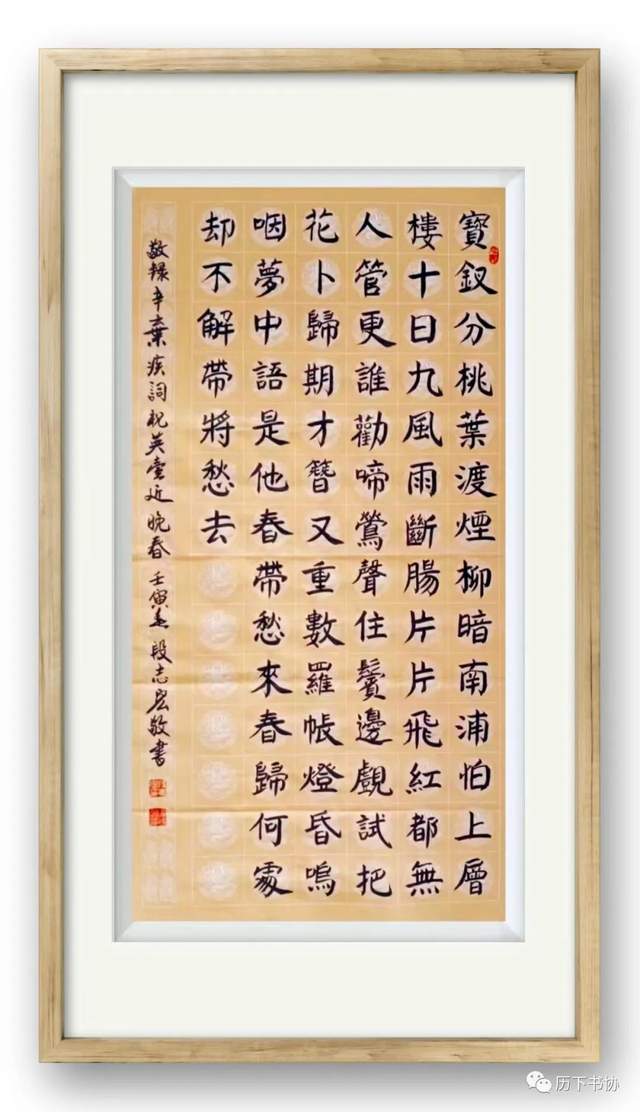 寶釵分桃葉渡煙柳暗南浦怕上層
樓十日九風雨斷腸片片飛紅都無
人管更誰勸啼鶯聲住鬢邊覷試把
花卜歸期才簪又重數羅帳燈昏嗚
咽夢中語是他春帶愁來春歸何處
却不解帶將愁去
敬錄辛棄疾詞祝英臺近晚春壬寅春段志宏敬書
历下书协